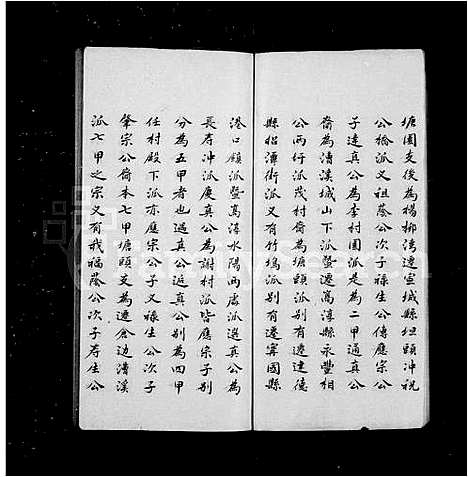 塘園支後為楊柳灣遷宣城縣垣頭冲祝
公捨派又祖蔭公次子祿生公傳應宗公
子達真公為李村園派是為二甲通真公
裔為清溪城山下派暨遷高淳縣永豐相
公兩圩派茂村裔為塘頭派別有遷建德
縣招潭街派又有竹塢派別有遷寧國縣
港口鎮派暨高淳水陽兩處派選真公為
長春冲派庚真公為謝村派皆應宗子別
分為五甲者也遇真公遊真公別為四甲
任村殿下派亦應宗公子又祿生公次子
肇宗公裔本七甲塘頭支為遷倉边清溪
派七甲之宗又有我福蔭公次子春生公
FamilySearch